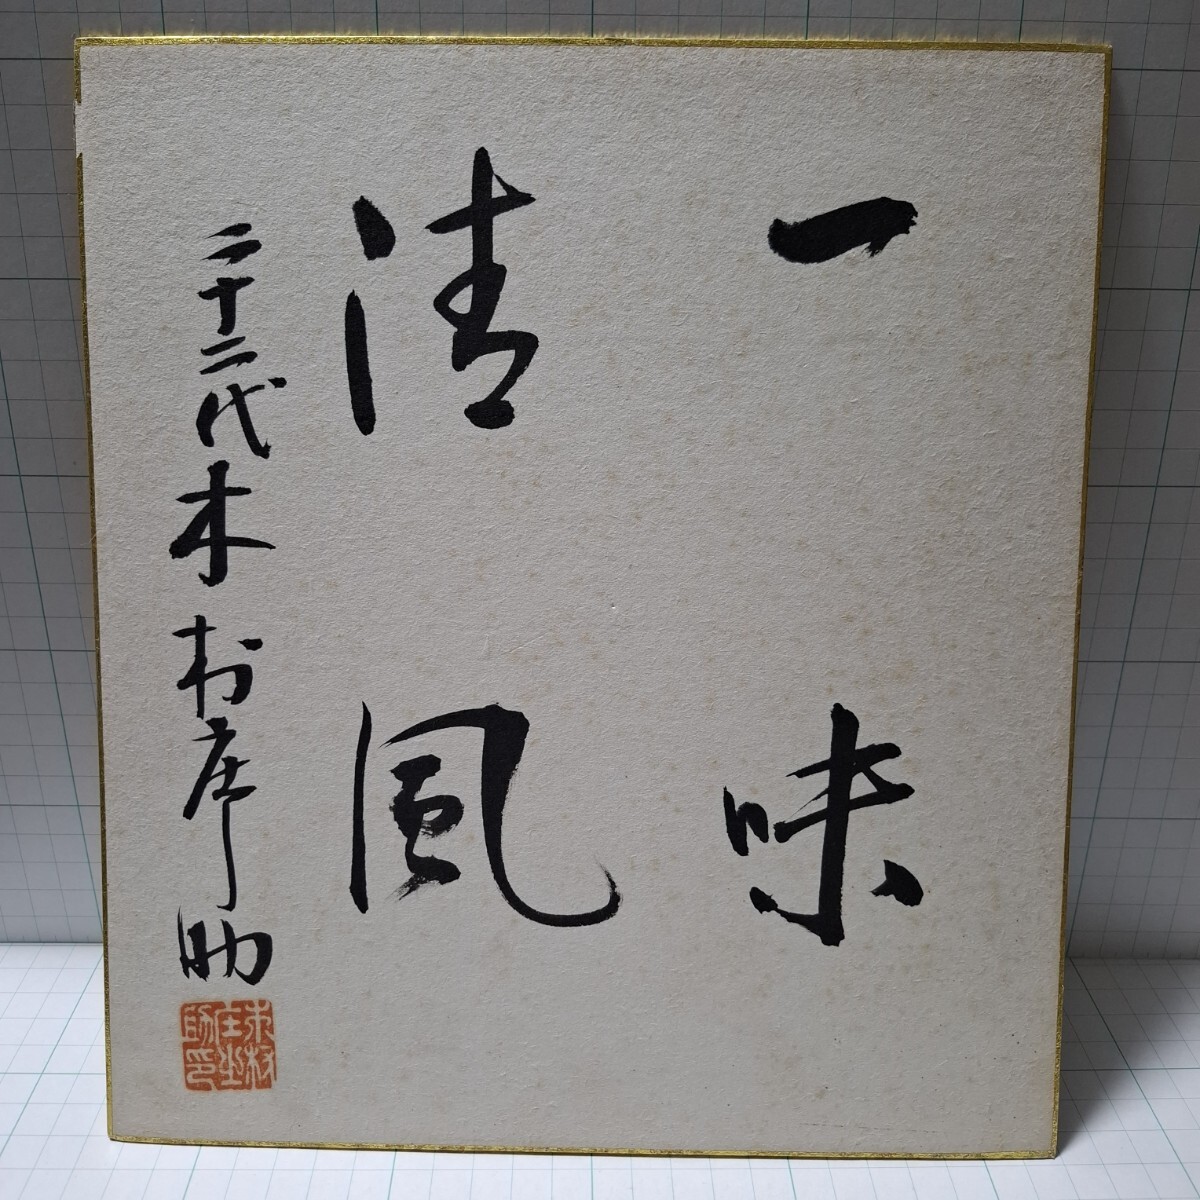 一味
清風
二十二代木村庄之助
木村
庄之
助印